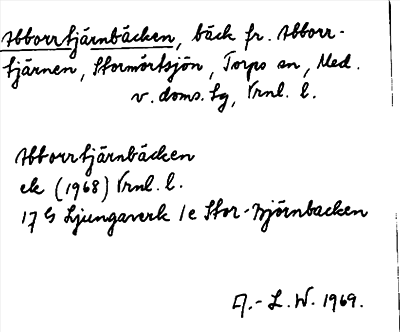 Abborrtjärnbäcken, bäck fr. Abborr-
tjärnen, Stormörtsjön, Torps sn, Med.
v. doms. tg, Vrnl. l.
Abborrtjärnbäcken
ek (1968) Vrnl. l.
17 G Ljungaverk 1 e Stor-Björnbacken
A.-L. W. 1969.